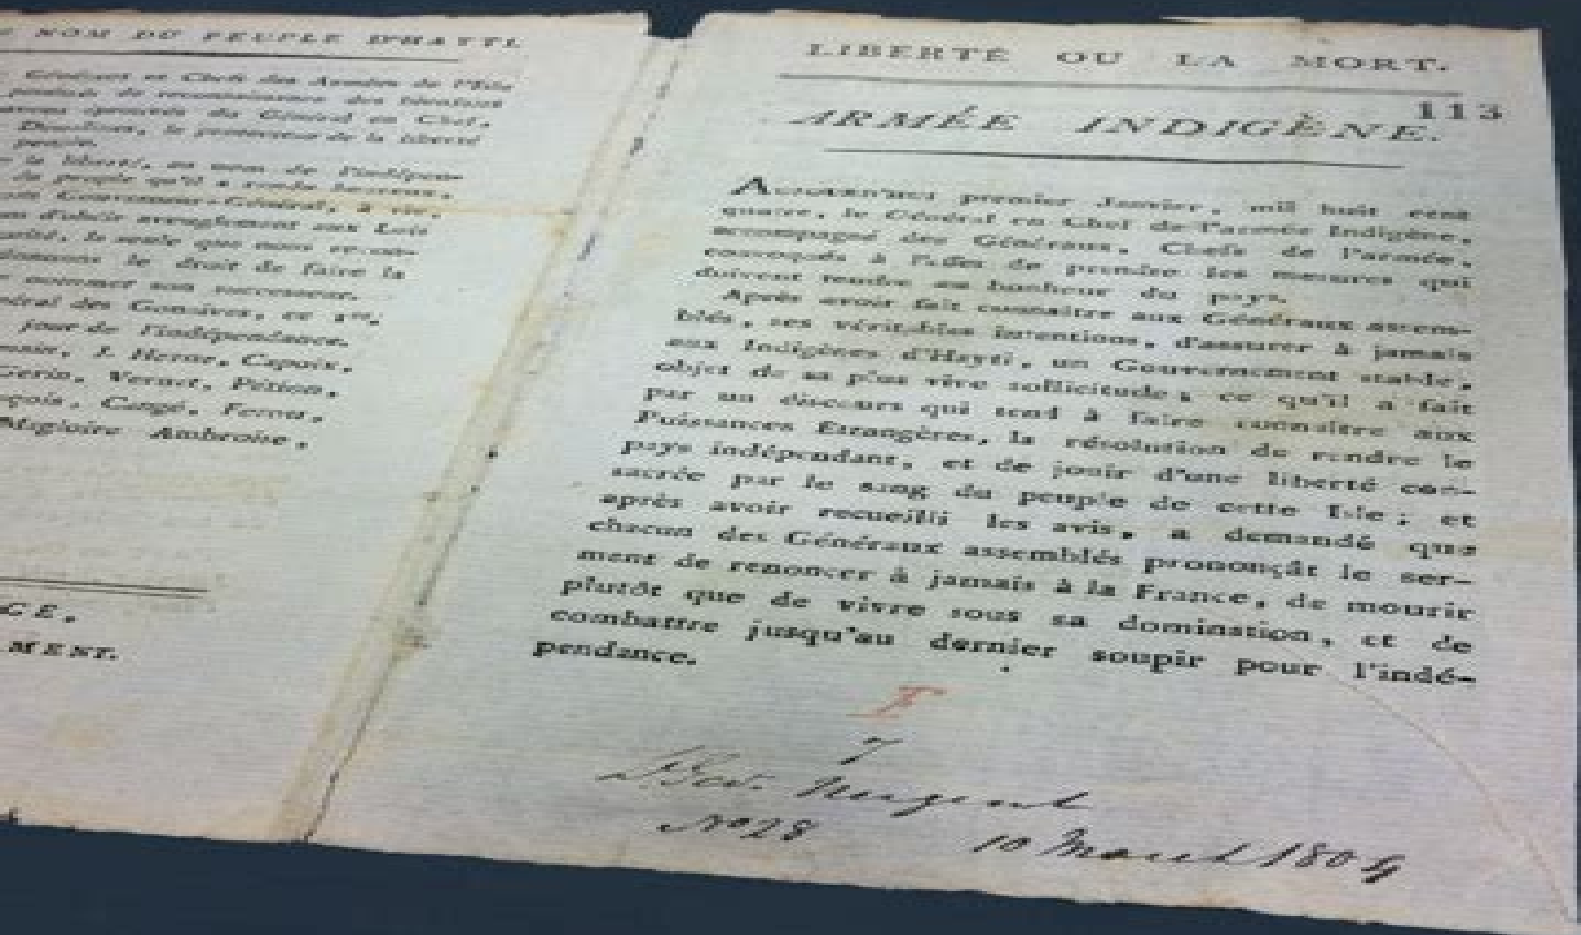 NOM DU PEUPLE D'HAYTI.
Généraux et Chefs des Armées de l'Isle
de reconnaissance des bienfaits
éprouvés du Général en Chef,
Dessalines, le protecteur de la liberté
peuple.
la liberté, au nom de l'indépen-
du peuple qu'il a rendu heureux,
Gouverneur-Général, à vie,
d'obéir aveuglément aux Lois
autorité, la seule que nous recon-
donnons le droit de faire la
nommer son successeur.
général des Gonaïves, ce 1er.
jour de l'indépendance.
Capoix,
Gerin, Vernet, Pétion,
Cangé, Ferou,
Magloire Ambroise,
CE.
MENT.
LIBERTÉ OU LA MORT.
113
ARMÉE INDIGÈNE.
AUJOURD'HUI premier Janvier, mil huit cent
quatre, le Général en Chef de l'armée Indigène,
accompagné des Généraux, Chefs de l'armée,
convoqués à l'effet de prendre les mesures qui
doivent tendre au bonheur du pays.
Après avoir fait connaître aux Généraux assem-
blés, ses véritables intentions, d'assurer à jamais
aux Indigènes d'Hayti, un Gouvernement stable,
objet de sa plus vive sollicitude; ce qu'il a fait
par un discours qui tend à faire connaître aux
Puissances Etrangères, la résolution de rendre le
pays indépendant, et de jouir d'une liberté con-
sacrée par le sang du peuple de cette Isle; et
après avoir recueilli les avis, a demandé que
chacun des Généraux assemblés prononçât le ser-
ment de renoncer à jamais à la France, de mourir
plutôt que de vivre sous sa domination, et de
combattre jusqu'au dernier soupir pour l'indé-
pendance.
Nugent
No 28 10 March 1804